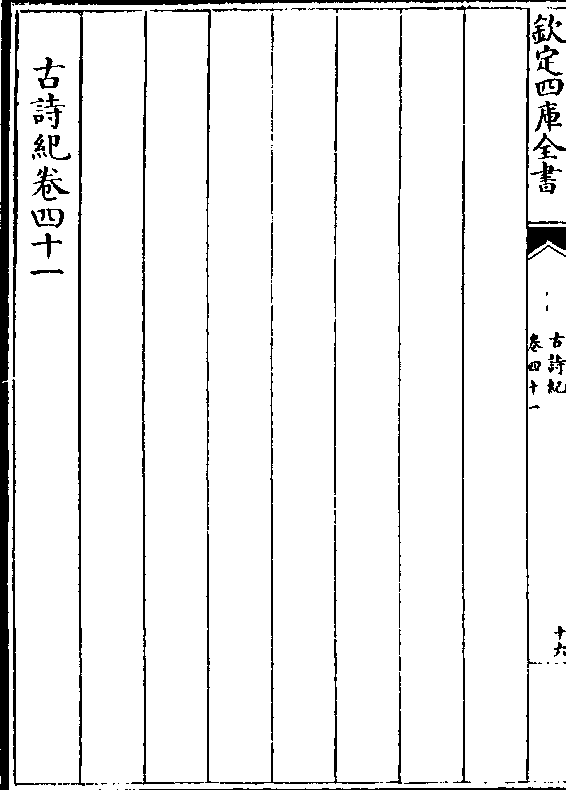 欽定四庫全書
古詩紀
卷四十一
十六
古詩紀卷四十一